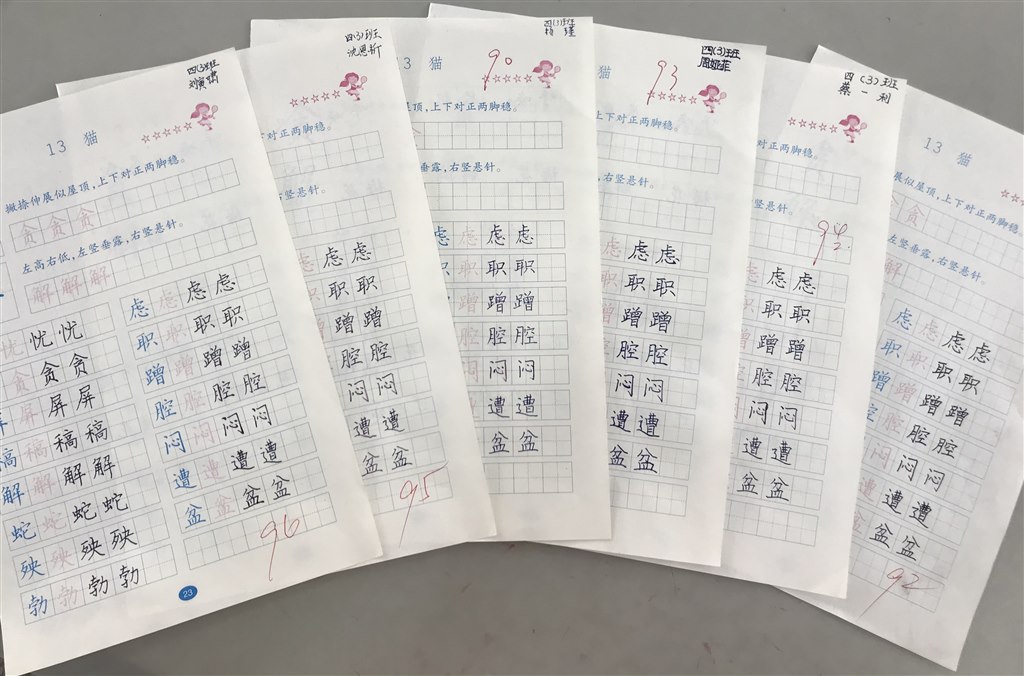 四(3)班
13 猫
撇捺伸展似屋顶,上下对正两脚稳。
贪 贪 贪
左高右低,左竖垂露,右竖悬针。
解 解 解
忧 忧 忧
贪 贪 贪
屏 屏 屏 屏
稿 稿 稿 稿
解 解 解 解
蛇 蛇 蛇 蛇
殃 殃 殃 殃
勃 勃 勃 勃
虑 虑 虑 虑
职 职 职 职
蹭 蹭 蹭 蹭
腔 腔 腔 腔
闷 闷 闷 闷
遭 遭 遭 遭
盆 盆 盆 盆
96
23
四(3)班
沈思昕
下对正两脚稳。
竖悬针。
虑 虑 虑
职 职 职
蹭 蹭 蹭
腔 腔
闷 闷
遭 遭
盆 盆
95
四(3)班
杨瑾
3 猫
90
顶,上下对正两脚稳。
垂露,右竖悬针。
虑 虑 虑 虑
职 职 职 职
蹭 蹭 蹭 蹭
腔 腔 腔 腔
闷 闷 闷
遭 遭 遭
盆 盆 盆
四(3)班
周娅菲
猫
93
上下对正两脚稳。
,右竖悬针。
虑 虑 虑
职 职 职
蹭 蹭 蹭
腔 腔 腔
闷 闷
遭 遭
盆 盆
四(3)班
蔡一利
对正两脚稳。
竖悬针。
94
虑 虑 虑
职 职 职
蹭 蹭 蹭
腔 腔 腔
闷 闷
遭 遭
盆 盆
13 猫
展似屋顶,上下对正两脚稳。
贪
左竖垂露,右竖悬针。
解
虑 虑 虑
职 职 职 职
蹭 蹭 蹭 蹭
腔 腔 腔
闷 闷 闷
遭 遭 遭
盆 盆 盆
92